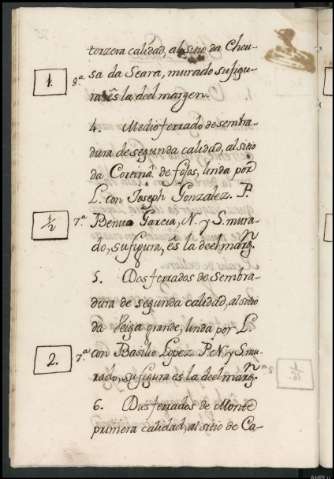 terzera calidad, al sitio da Chou-
1. 9ª sa da Seara, murado su figu-
ra és la del márgen.
4. Medio ferrado de sembra-
dura de segunda calidad, al sitio
da Cortiña de fojos, linda por
L. con Joseph Gonzalez. P.
1/2 7ª Benito Garcia, N. y S. mura-
do, su figura, és la del marg.n
5. Dos ferrados de Sembra-
dura de segunda calidad, al sitio
da Veiga grande, linda por L.
2. 7ª con Basilio Lopez P. N. y S. mu-
rado, su figura és la del marg.n
6. Dos ferrados de Monte
primera calidad, al sitio de Ca-